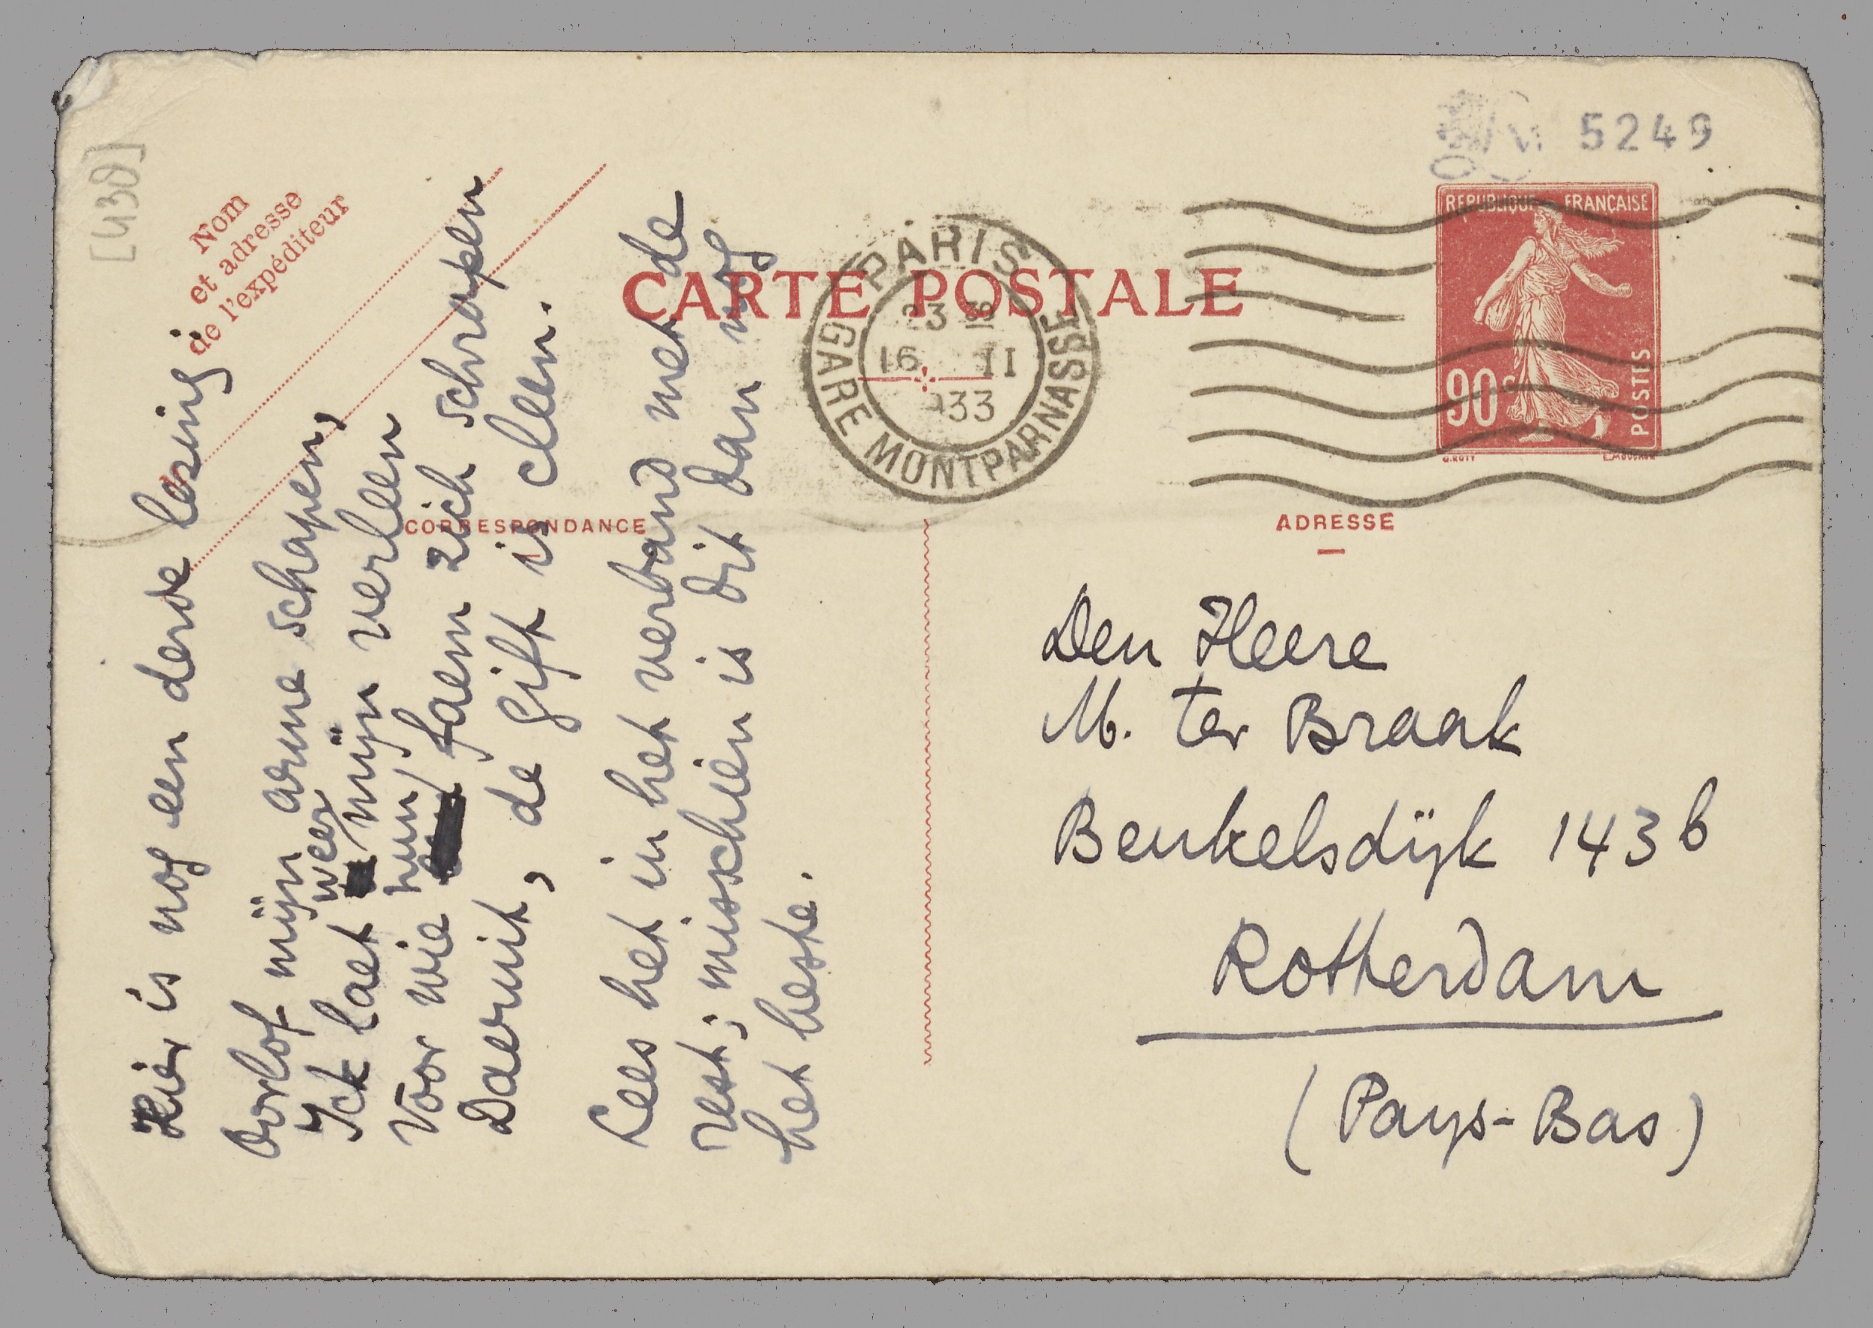 [430]
Nom
et adresse
de l'expéditeur
CARTE POSTALE
PARIS
GARE MONTPARNASSE
16 II
5249
REPUBLIQUE FRANÇAISE
90c
POSTES
O.ROTY
CORRESPONDANCE
ADRESSE
Hier is nog een derde lesing:
Oorlof mijn arme schapen,
weer
Ick laet mijn verleen
hun
Voor wie faem zich schrapen
Daeruit, de gift is cleen.
Lees het in het verband met de
rest; misschien is dit dan nog
het beste.
Den Heere
M. ter Braak
Beukelsdÿk 143b
Rotterdam
(Pays-Bas)